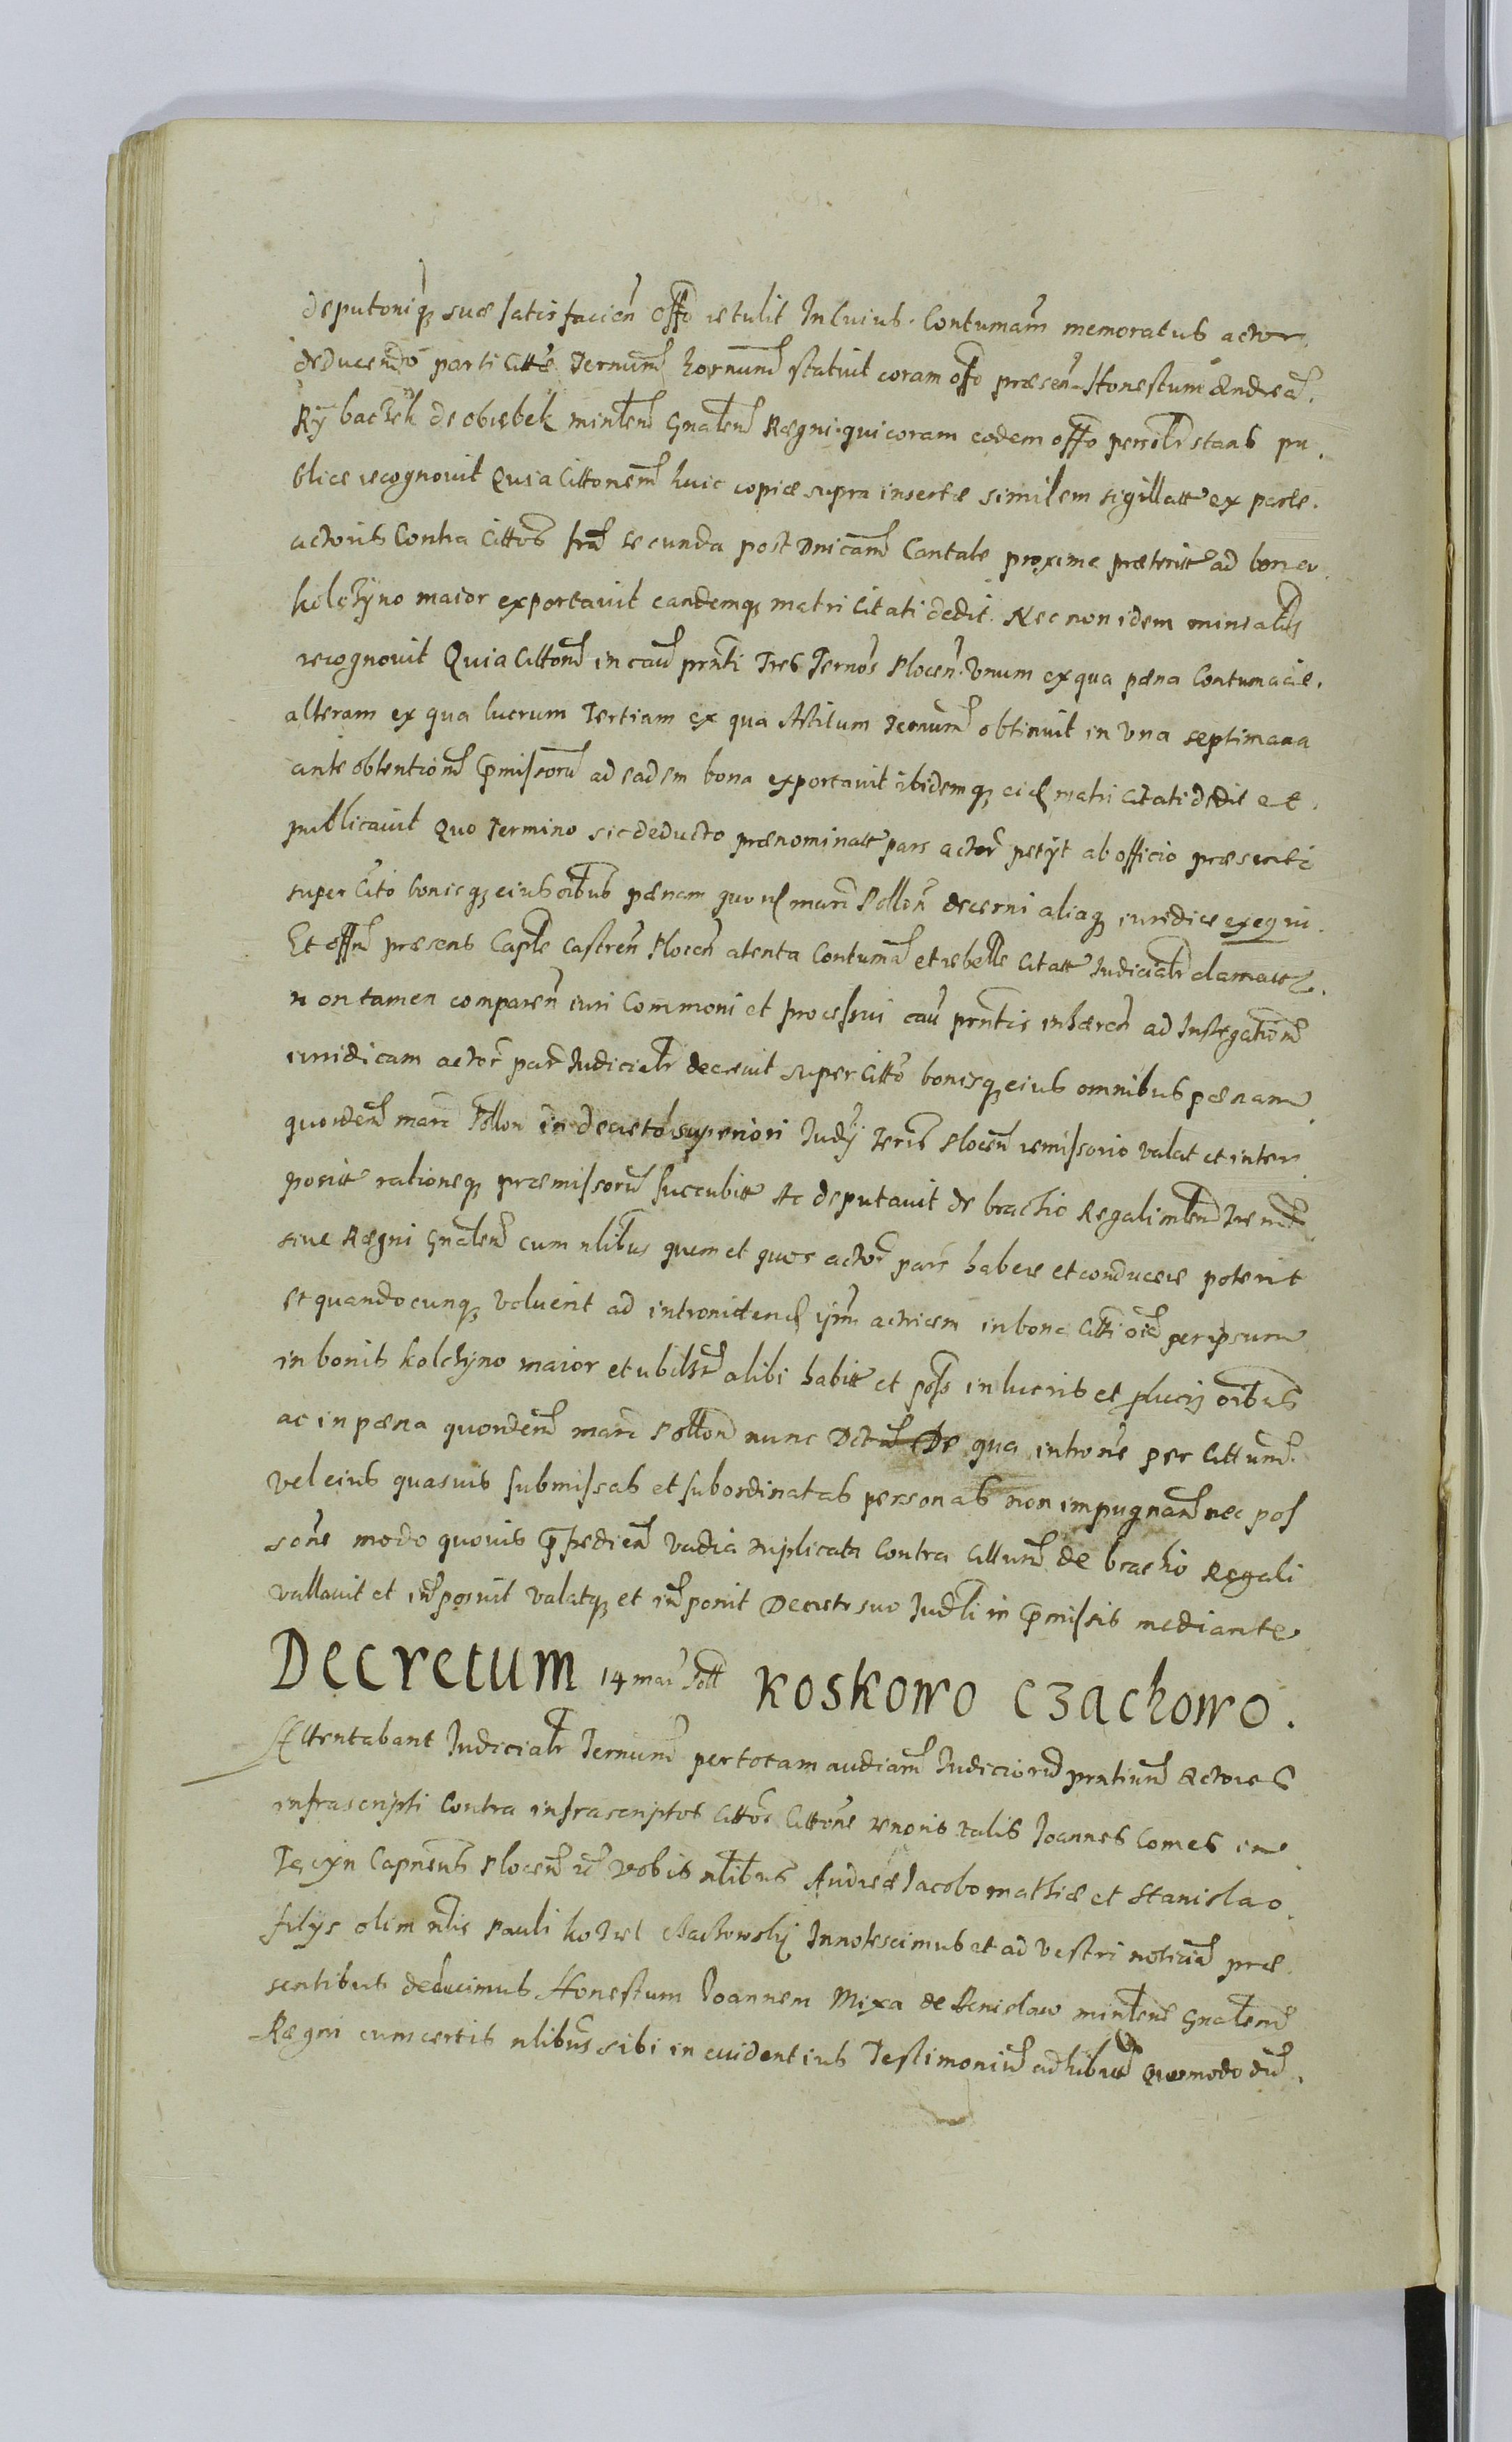 deputoniq suæ satisfacien offo retulit In cuius Contumam memoratus actor
deducendo parti Cittæ Ternum hornum statuit coram offo præsen Honestum Andream
Rybaczek de obrebek minlem Gnalem Regni qui coram eodem offo persilr stans pu
blice recognovit Quia Cittonem huic copiæ supra insertæ similem sigillatt ex parte
actoris Contra Cittos fria secunda post Dnicam Cantate proxime præteritt ad bona
kolczyno maior exportavit eandemq matri Citati dedit Nec non idem minsalis
recognovit Quia Cittom in cau prnti Tres Ternos Plocen Unum ex qua pæna Contumaciæ
alteram ex qua lucrum Tertiam ex qua Astitum Ternum obtinuit in una septimana
ante obtentionem præmissorum ad eadem bona exportavit ibidemq eid matri citati dedit et
publicavit Quo Termino sic deducto prænominatt pars actor petyt ab officio præsenti
super Cito bonisq eius oibus pænam quord marc Pollon decerni aliaq iuridice exequi
Et offm præsens Caple Castren Plocen atenta Contuma et rebelle Citatt Iudicialr clamatt
non tamen comparen iuri Commoni et processui cau prntis inhæren ad Instigationem
iuridicam actor par Iudicialr decrevit super Citto bonisq eius omnibus pænam
quordem marc Pollon in decreto superiori Iudy Terris Plocen remissorio valat et inter
positt rationeq præmissorum succubitt Ac deputavit de brachio Regali mlem
sive Regni Gnalem cum nlibus quem et quos actor pars habere et conducere poterit
et quandocunq voluerit ad intromittend ipm actricem in bona Citti oia per ipsum
in bonis kolczyno maior et ubilibt alibi habitt et poss in lucris et oibus
ac in pæna quordem marc Pollon nunc De qua introne per Cittum
vel eius quasvis submissas et subordinatas personas non impugnan nec pos
sone modo quovis præpedien vadia triplicata Contra Cittum de brachio Regali
vallavit et inposuit valatq et inponit Decreto suo Iudli in præmissis mediante
Decretum 14 mar Poll Koskowo Czachowo.
Attentabant Iudicialr Ternum per totam audiam Iudiciorum prntium Actores
infrascripti Contra infrascriptos Cittos Cittone tenoris talis Joannes Comes in
Tęczyn Capneus Plocen etc Vobis nlibus Andreæ Jacobo mathiæ et Stanislao
filys olim nlis Pauli Kozieł Innotescimus et ad Vestri noticiam præ
sentibus deducimus Honestum Joannem Mixa de minlem Gnalem
Regni cum certis nlibus sibi in evidentius Testimonium adhibitt Quomodo dum